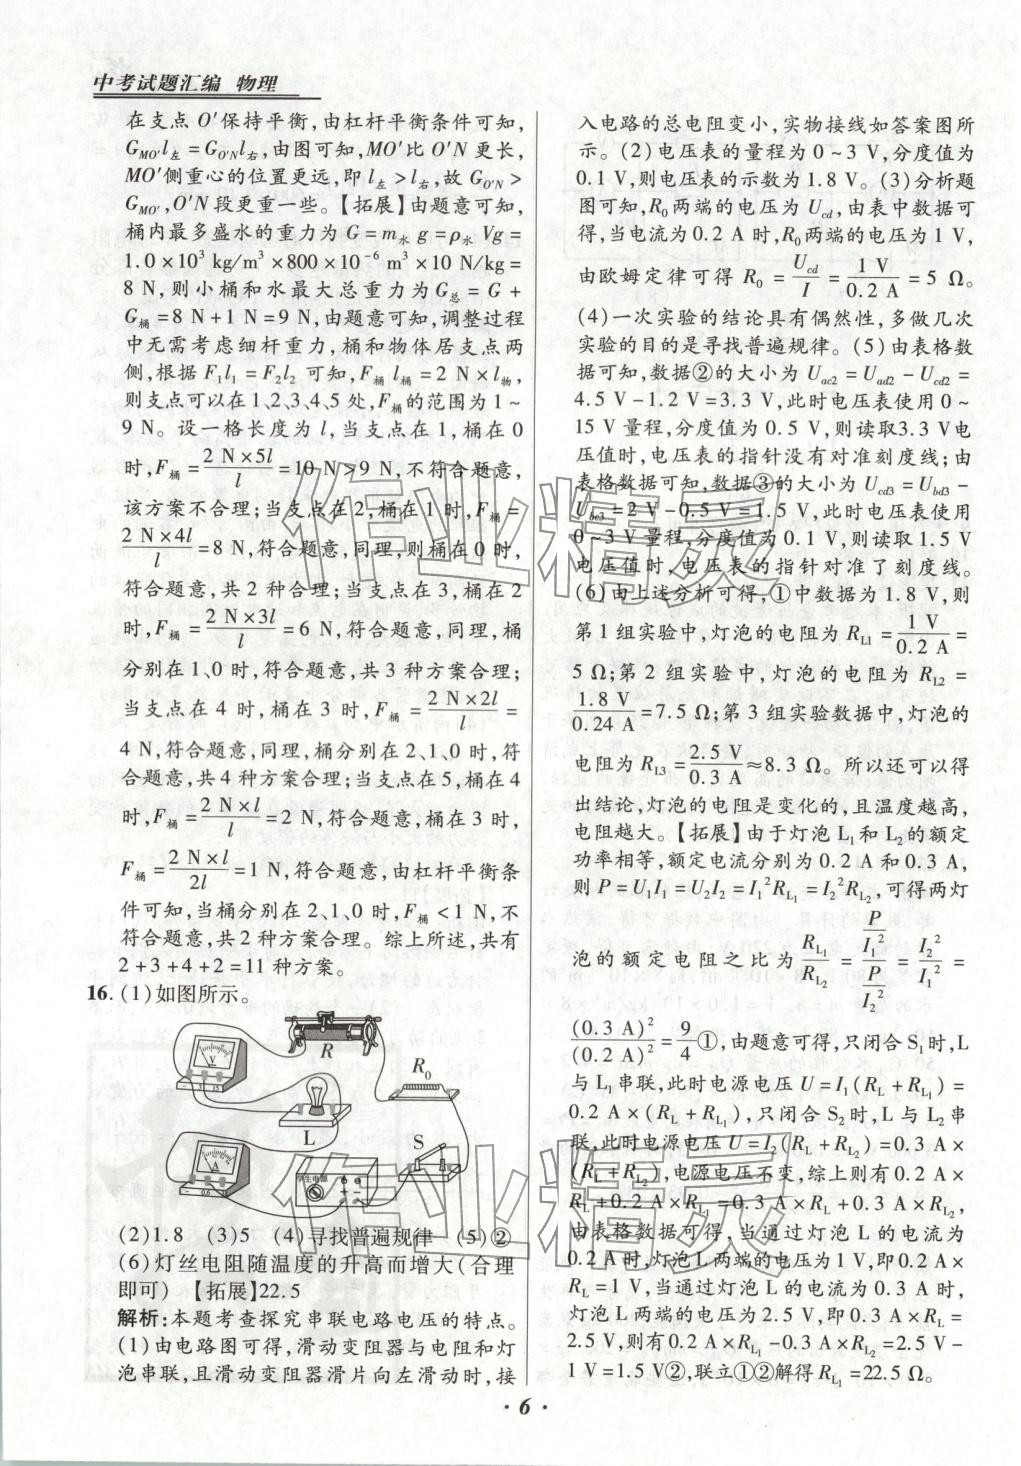 中考试题汇编 物理
在支点 O′保持平衡,由杠杆平衡条件可知,
G_{MO′}l_左=G_{O′N}l_右,由图可知,MO′比 O′N 更长,
MO′侧重心的位置更远,即 l_左>l_右,故 G_{O′N}>
G_{MO′},O′N 段更重一些。【拓展】由题意可知,
桶内最多盛水的重力为 G=m_水 g=ρ_水 Vg=
1.0×10³ kg/m³×800×10⁻⁶ m³×10 N/kg=
8 N,则小桶和水最大总重力为 G_总=G+
G_桶=8 N+1 N=9 N,由题意可知,调整过程
中无需考虑细杆重力,桶和物体居支点两
侧,根据 F₁l₁=F₂l₂ 可知,F_桶 l_桶=2 N×l_物,
则支点可以在 1、2、3、4、5 处,F_桶的范围为 1~
9 N。设一格长度为 l,当支点在 1,桶在 0
时,F_桶=2 N×5l/l=10 N>9 N,不符合题意,
该方案不合理;当支点在 2,桶在 1 时,F_桶=
2 N×4l/l=8 N,符合题意,同理,则桶在 0 时,
符合题意,共 2 种合理;当支点在 3,桶在 2
时,F_桶=2 N×3l/l=6 N,符合题意,同理,桶
分别在 1、0 时,符合题意,共 3 种方案合理;
当支点在 4 时,桶在 3 时,F_桶=2 N×2l/l=
4 N,符合题意,同理,桶分别在 2、1、0 时,符
合题意,共 4 种方案合理;当支点在 5,桶在 4
时,F_桶=2 N×l/l=2 N,符合题意,桶在 3 时,
F_桶=2 N×l/2l=1 N,符合题意,由杠杆平衡条
件可知,当桶分别在 2、1、0 时,F_桶<1 N,不
符合题意,共 2 种方案合理。综上所述,共有
2+3+4+2=11 种方案。
16.(1)如图所示。
V
- 3 15
R
R₀
L
A
- 0.6 3
学生电源
S
(2)1.8 (3)5 (4)寻找普遍规律 (5)②
(6)灯丝电阻随温度的升高而增大(合理
即可) 【拓展】22.5
解析:本题考查探究串联电路电压的特点。
(1)由电路图可得,滑动变阻器与电阻和灯
泡串联,且滑动变阻器滑片向左滑动时,接
入电路的总电阻变小,实物接线如答案图所
示。(2)电压表的量程为 0~3 V,分度值为
0.1 V,则电压表的示数为 1.8 V。(3)分析题
图可知,R₀ 两端的电压为 U_{cd},由表中数据可
得,当电流为 0.2 A 时,R₀两端的电压为 1 V,
由欧姆定律可得 R₀=U_{cd}/I=1 V/0.2 A=5 Ω。
(4)一次实验的结论具有偶然性,多做几次
实验的目的是寻找普遍规律。(5)由表格数
据可知,数据②的大小为 U_{ac2}=U_{ad2}-U_{cd2}=
4.5 V-1.2 V=3.3 V,此时电压表使用 0~
15 V 量程,分度值为 0.5 V,则读取3.3 V电
压值时,电压表的指针没有对准刻度线;由
表格数据可知,数据③的大小为 U_{cd3}=U_{bd3}-
U_{bc3}=2 V-0.5 V=1.5 V,此时电压表使用
0~3 V 量程,分度值为 0.1 V,则读取 1.5 V
电压值时,电压表的指针对准了刻度线。
(6)由上述分析可得,①中数据为 1.8 V,则
第 1 组实验中,灯泡的电阻为 R_{L1}=1 V/0.2 A=
5 Ω;第 2 组实验中,灯泡的电阻为 R_{L2}=
1.8 V/0.24 A=7.5 Ω;第 3 组实验数据中,灯泡的
电阻为 R_{L3}=2.5 V/0.3 A≈8.3 Ω。所以还可以得
出结论,灯泡的电阻是变化的,且温度越高,
电阻越大。【拓展】由于灯泡 L₁和 L₂的额定
功率相等,额定电流分别为 0.2 A和 0.3 A,
则 P=U₁I₁=U₂I₂=I₁²R_{L₁}=I₂²R_{L₂},可得两灯
泡的额定电阻之比为 R_{L₁}/R_{L₂}=(P/I₁²)/(P/I₂²)=I₂²/I₁²=
(0.3 A)²/(0.2 A)²=9/4①,由题意可得,只闭合S₁时,L
与 L₁串联,此时电源电压 U=I₁(R_L+R_{L₁})=
0.2 A×(R_L+R_{L₁}),只闭合 S₂时,L 与 L₂串
联,此时电源电压 U=I₂(R_L+R_{L₂})=0.3 A×
(R_L+R_{L₂}),电源电压不变,综上则有 0.2 A×
R_L+0.2 A×R_{L₁}=0.3 A×R_L+0.3 A×R_{L₂},
由表格数据可得,当通过灯泡 L 的电流为
0.2 A时,灯泡 L 两端的电压为 1 V,即 0.2 A×
R_L=1 V,当通过灯泡 L 的电流为 0.3 A 时,
灯泡 L 两端的电压为 2.5 V,即 0.3 A×R_L=
2.5 V,则有 0.2 A×R_{L₁}-0.3 A×R_{L₂}=2.5 V-
1 V=1.5 V②,联立①②解得 R_{L₁}=22.5 Ω。
作业精灵
作业精灵
· 6 ·